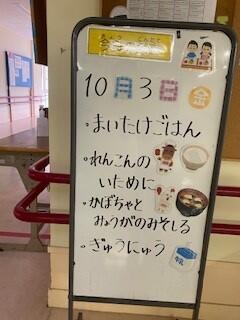 10月3日 金
・まいたけごはん
・れんこんの
いために
・かぼちゃと
みょうがのみそしる
・ぎゅうにゅう
牛乳